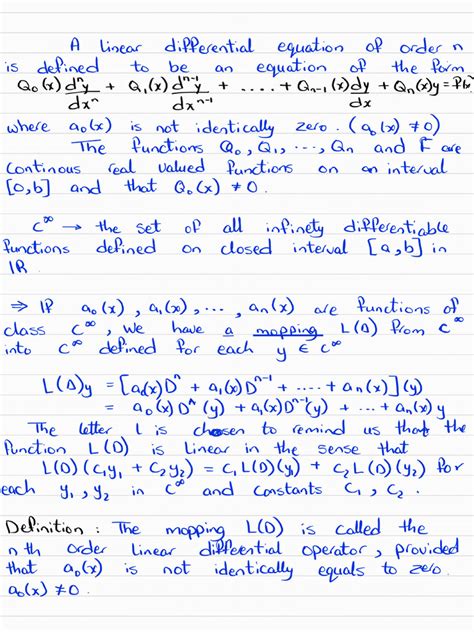 A linear differential equation of order n
is defined to be an equation of the form
Q₀(x) dⁿy/dxⁿ + Q₁(x) dⁿ⁻¹y/dxⁿ⁻¹ + .... + Qₙ₋₁(x) dy/dx + Qₙ(x)y = F(x)
where a₀(x) is not identically zero. (a₀(x) ≠ 0)
The functions Q₀, Q₁, ..., Qn and F are
continous real valued functions on an interval
[0,b] and that Q₀(x) ≠ 0.
C^∞ → the set of all infinety differentiable
functions defined on closed interval [a,b] in
IR.
⇒ IF a₀(x), a₁(x), ..., an(x) are functions of
class C^∞, we have a mapping L(D) from C^∞
into C^∞ defined for each y ∈ C^∞
L(D)y = [a₀(x)Dⁿ + a₁(x)Dⁿ⁻¹ + .... + an(x)](y)
= a₀(x)Dⁿ(y) + a₁(x)Dⁿ⁻¹(y) + ... + an(x)y
The letter L is chosen to remind us that the
function L(D) is linear in the sense that
L(D)(C₁y₁ + C₂y₂) = C₁L(D)(y₁) + C₂L(D)(y₂) for
each y₁, y₂ in C^∞ and constants C₁, C₂.
Definition: The mapping L(D) is called the
nth order linear differential operator, provided
that a₀(x) is not identically equals to zero.
a₀(x) ≠ 0.